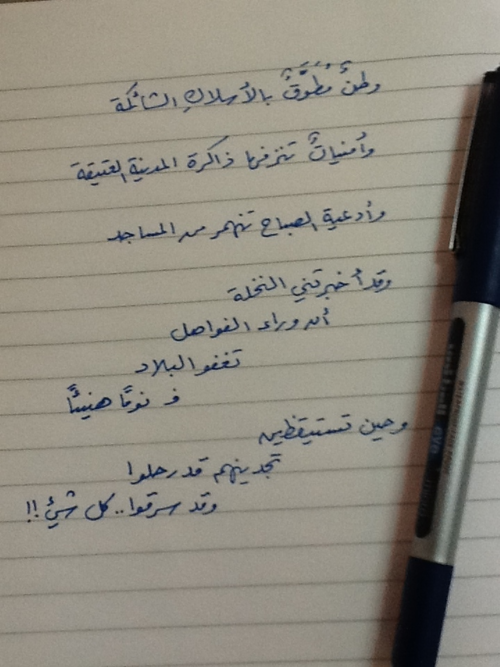 وطنٌ مُطَوَّقٌ بالأسلاكِ الشائكة
وأمنياتٌ تنزفها ذاكرة المدينة العتيقة
وأدعية الصباح تنهمر من المساجد
وقد أخبرتني النخلة
أن وراء الفواصل
تغفو البلاد
فـ نومًا هنيئًا
وحين تستيقظين
تجدينهم قد رحلوا
وقد سرقوا.. كل شيْ !!
uni-ball eye